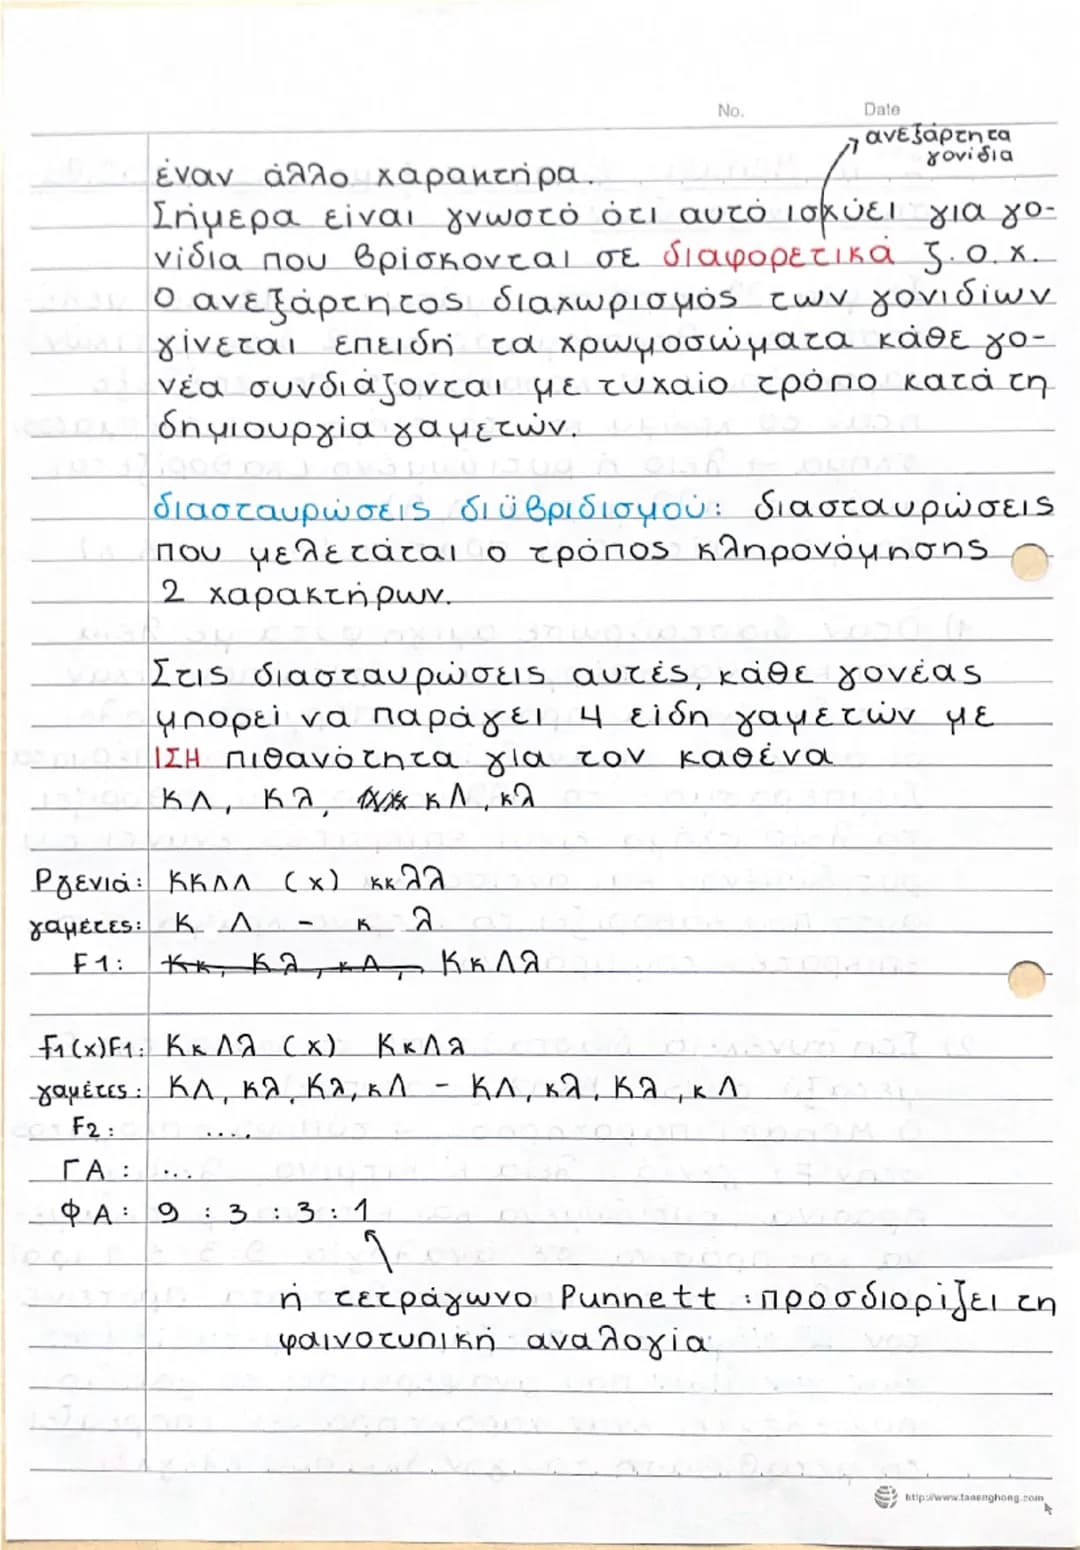 No. Date
ανεξάρτητα
γονίδια
έναν άλλο χαρακτήρα.
Σήμερα είναι γνωστό ότι αυτό ισχύει για γο-
νίδια που βρίσκονται σε διαφορετικά ζ.ο.χ.
Ο ανεξάρτητος διαχωρισμός των γονιδίων
γίνεται επειδή τα χρωμοσώματα κάθε γο-
νέα συνδιάζονται με τυχαίο τρόπο κατά τη
δημιουργία γαμετών.
διασταυρώσεις διϋβριδισμού: διασταυρώσεις
που μελετάται ο τρόπος κληρονόμησης
2 χαρακτήρων.
Στις διασταυρώσεις αυτές, κάθε γονέας
μπορεί να παράγει 4 είδη γαμετών με
ΙΣΗ πιθανότητα για τον καθένα
ΚΛ, Κλ, κΛ, κλ
Ργενιά: ΚΚΛΛ (x) κκλλ
γαμέτες: Κ Λ - κ λ
F1: Κκ, Κλ, κΛ, ΚκΛλ
F1(x)F1: ΚκΛλ (x) ΚκΛλ
γαμέτες: ΚΛ, κλ, Κλ, κΛ - ΚΛ, κλ, Κλ, κΛ
F2: ....
ΓΑ: ...
ΦΑ: 9 : 3 : 3 : 1
ή τετράγωνο Punnett : προσδιορίζει τη
φαινοτυπική αναλογία
http://www.taaenghong.com